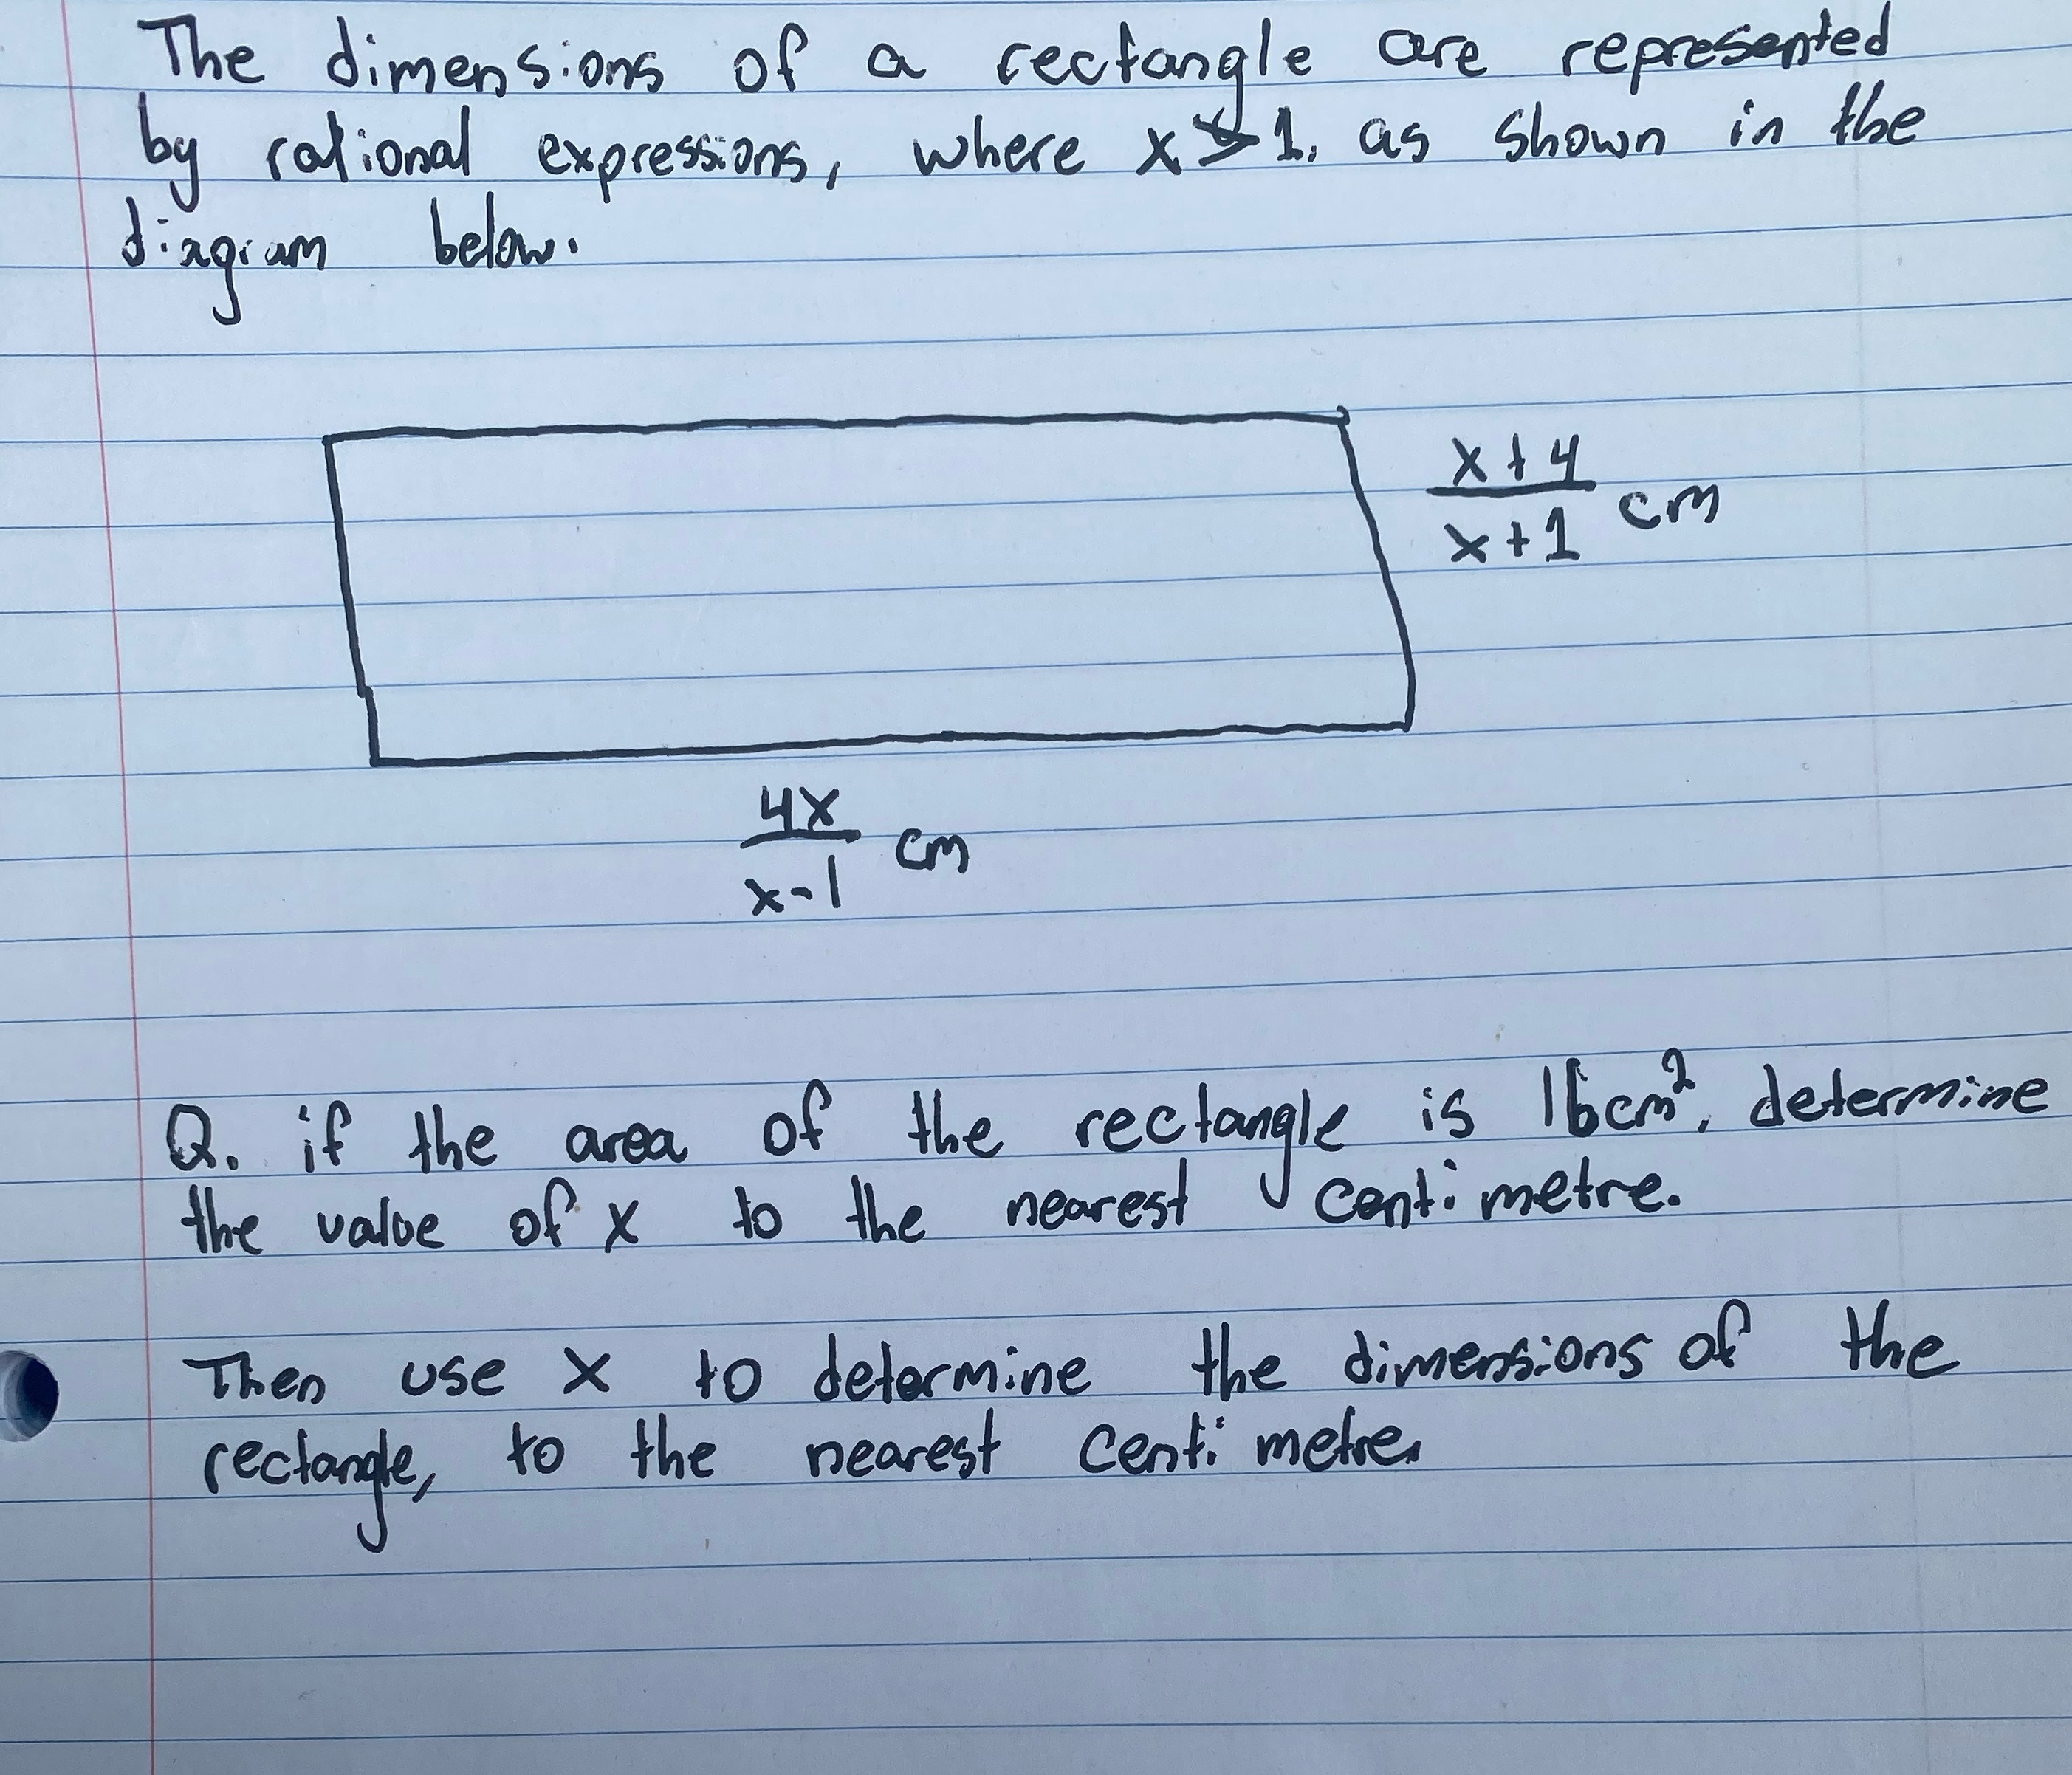 The dimensions of a rectangle are represented
by rational expressions, where x > 1, as shown in the
diagram below.
x + 4
x + 1 cm
4x
x - 1 cm
Q. if the area of the rectangle is 16cm², determine
the value of x to the nearest centi metre.
Then use x to determine the dimensions of the
rectangle, to the nearest centi metre.